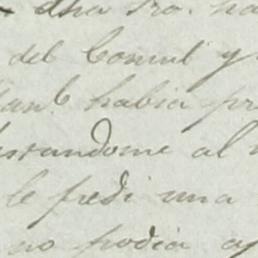 dha Sra. ha
del Comité y
tanb. habia pr
trandome al
le pedi una
no podia